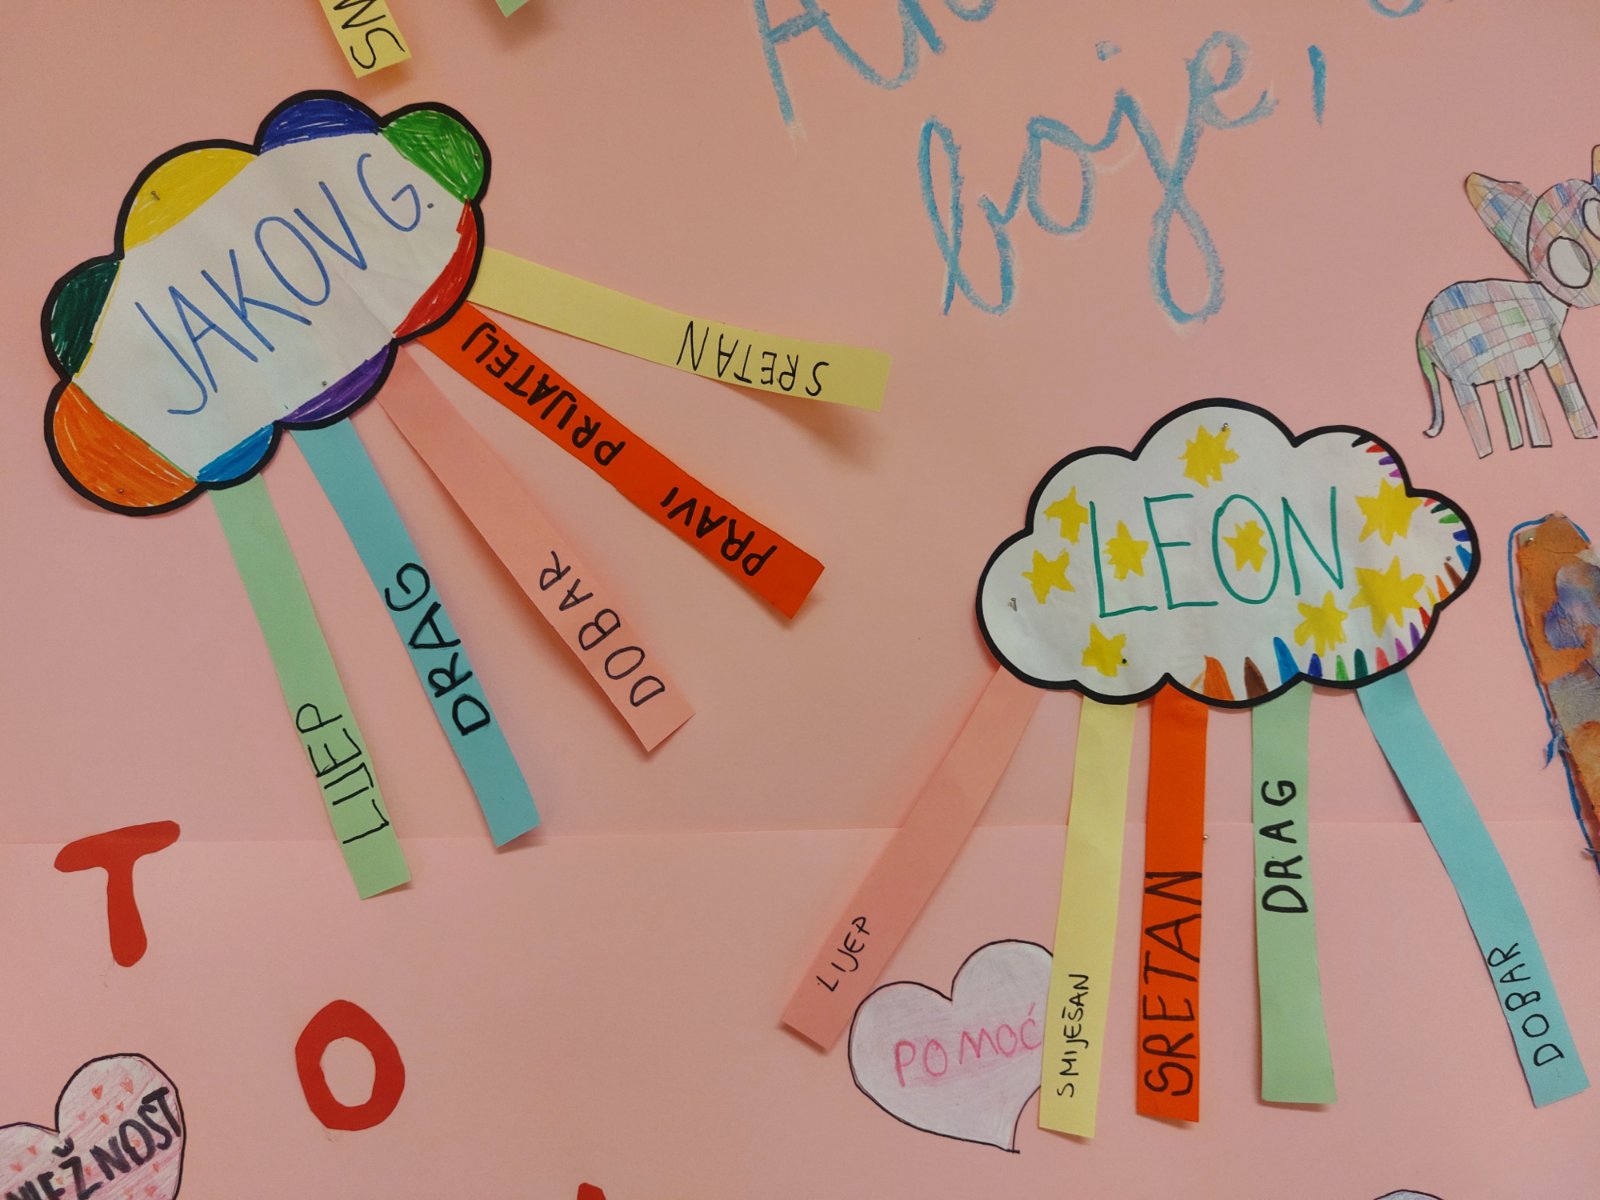 boje,
JAKOV G.
SRETAN
PRAVI PRIJATELJ
DOBAR
DRAG
LIJEP
LEON
LIJEP
SMIJEŠAN
SRETAN
DRAG
DOBAR
POMOĆ
T
O